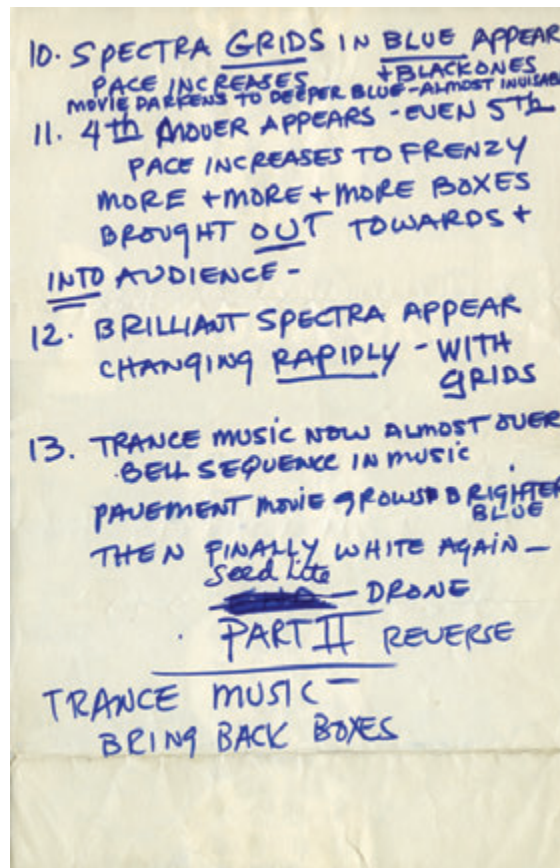 10. SPECTRA GRIDS IN BLUE APPEAR
+ BLACK ONES
PACE INCREASES
MOVIE DARKENS TO DEEPER BLUE - ALMOST INVISABL
11. 4th MOVER APPEARS - EVEN 5th
PACE INCREASES TO FRENZY
MORE + MORE + MORE BOXES
BROUGHT OUT TOWARDS +
INTO AUDIENCE -
12. BRILLIANT SPECTRA APPEAR
CHANGING RAPIDLY - WITH
GRIDS
13. TRANCE MUSIC NOW ALMOST OVER
BELL SEQUENCE IN MUSIC
PAVEMENT MOVIE GROWS BRIGHTER
BLUE
THEN FINALLY WHITE AGAIN -
Seed
- DRONE
PART II REVERSE
TRANCE MUSIC -
BRING BACK BOXES